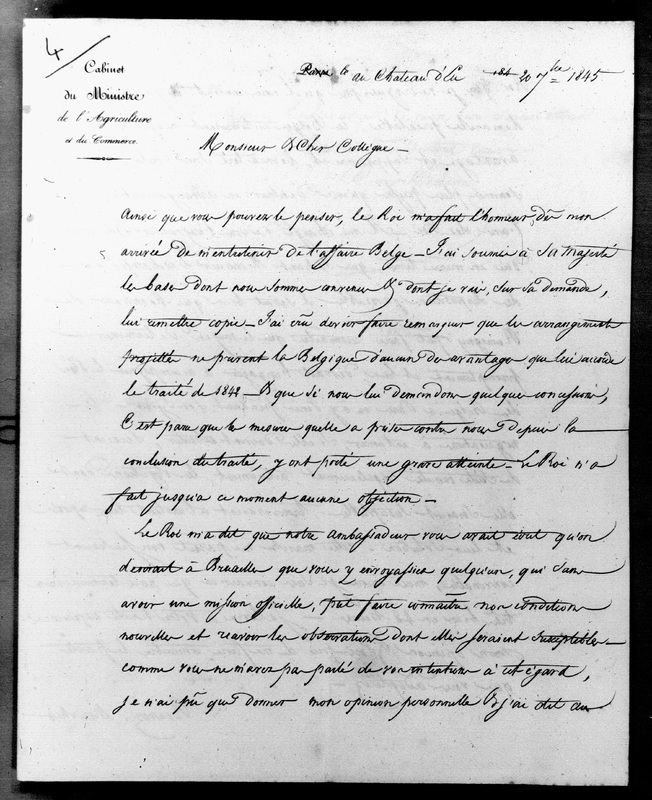 4
Cabinet
du Ministre
de l'Agriculture
et du Commerce.
Paris le au Chateau d'Eu 184 20 7bre 1845
Monsieur & Cher Collègue -
Ainsi que vous pouvez le penser, le Roi m'a fait l'honneur, dès mon
arrivée de m'entretenir de l'affaire Belge - J'ai soumis à Sa Majesté
les bases dont nous sommes convenus & dont je vais, sur sa demande,
lui remettre copie - J'ai cru devoir faire remarquer que les arrangements
projettés ne privent la Belgique d'aucun des avantages que lui accorde
le traité de 1842 - & que si nous lui demandons quelques concessions,
C'est parce que les mesures quelle a prises contre nous depuis la
conclusion du traité, y ont porté une grave atteinte - Le Roi n'a
fait jusqu'a ce moment aucune objection -
Le Roi m'a dit que notre Ambassadeur vous avait écrit qu'on
désirait à Bruxelles que vous y envoyassiez quelqu'un, qui sans
avoir une mission officielle, pût faire connaitre nos conditions
nouvelles et recevoir les observations dont elles seraient susceptibles -
comme vous ne m'avez pas parlé de vos intentions à cet égard,
je n'ai pû que donner mon opinion personnelle & j'ai dit au